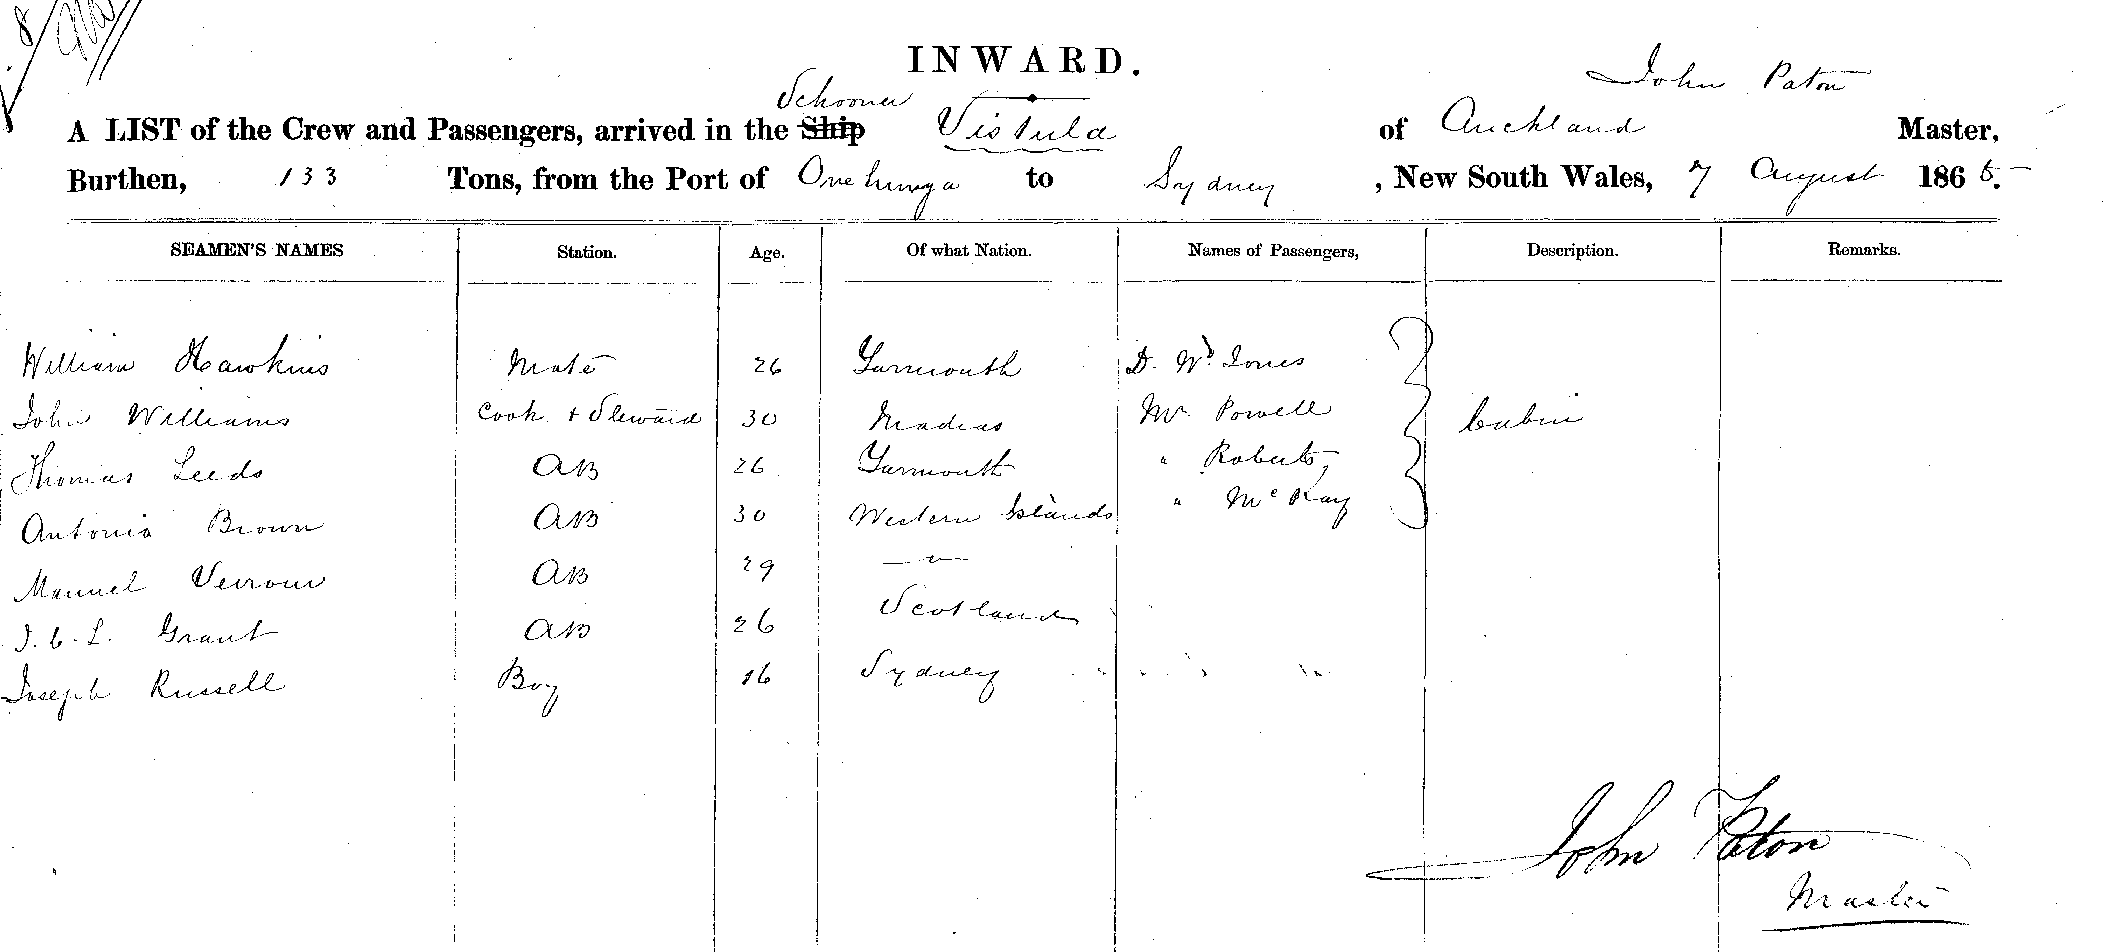 INWARD.
Schooner John Paton
A LIST of the Crew and Passengers, arrived in the Ship Vistula of Auckland Master,
Burthen, 133 Tons, from the Port of Onehunga to Sydney , New South Wales, 7 August 1865.
SEAMEN'S NAMES Station. Age. Of what Nation. Names of Passengers, Description. Remarks.
William Hawkins Mate 26 Yarmouth D. Wd Jones
John Williams Cook + Steward 30 Madras Mr Powell Cabin
Thomas Leeds AB 26 Yarmouth " Roberts
Antonio Brown AB 30 Western Islands " McKay
Manuel AB 29 — " —
J. C. L. Grant AB 26 Scotland
Joseph Russell Boy 16 Sydney
John Paton
Master